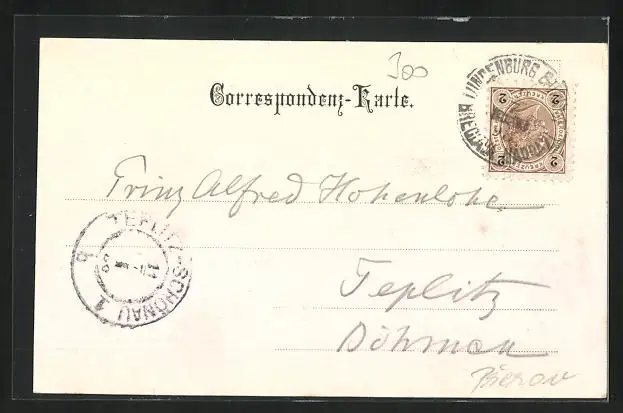 300
Correspondenz-Karte.
LUNDENBURG
2 KREUZER 2
Prinz Alfred Hohenlohe
TEPLITZ-SCHÖNAU 1
Teplitz
Böhmen